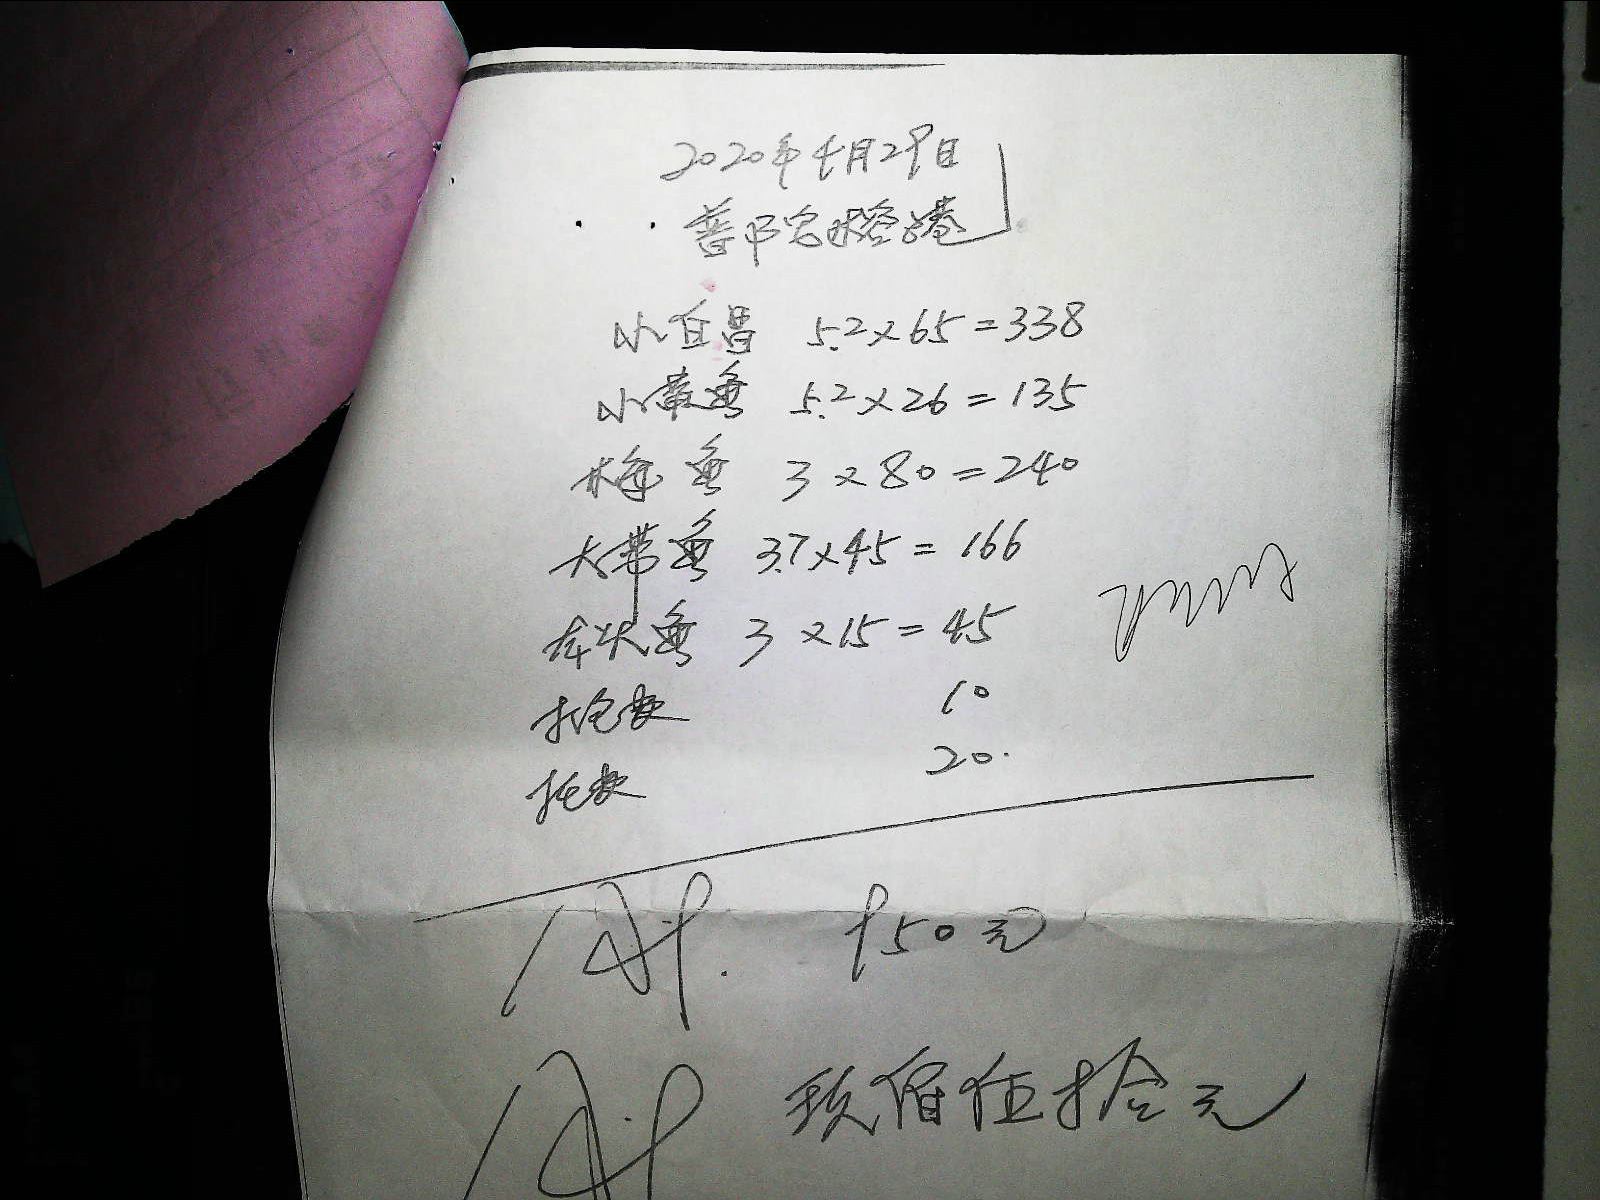 2020年4月29日
小白昌 5.2×65=338
小带鱼 5.2×26=135
梅鱼 3×80=240
大带鱼 3.7×45=166
鱼 3×15=45
抱款 10
托款 20
950元
玖佰伍拾元